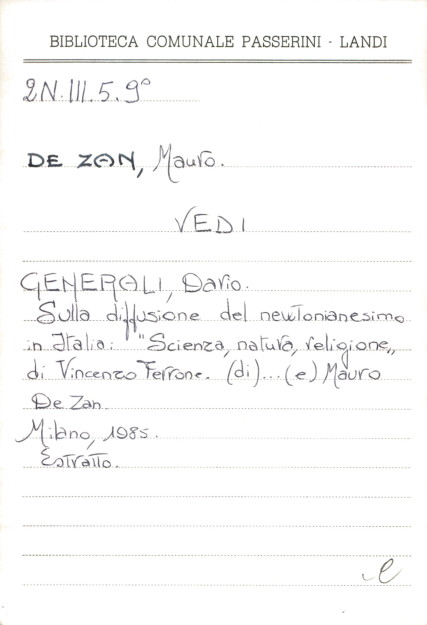 BIBLIOTECA COMUNALE PASSERINI - LANDI
2N.III.5.9°
DE ZAN, Mauro.
VEDI
GENERALI, Dario.
Sulla diffusione del newtonianesimo
in Italia: "Scienza, natura, religione„
di Vincenzo Ferrone. (di)...(e) Mauro
De Zan.
Milano, 1985.
Estratto.